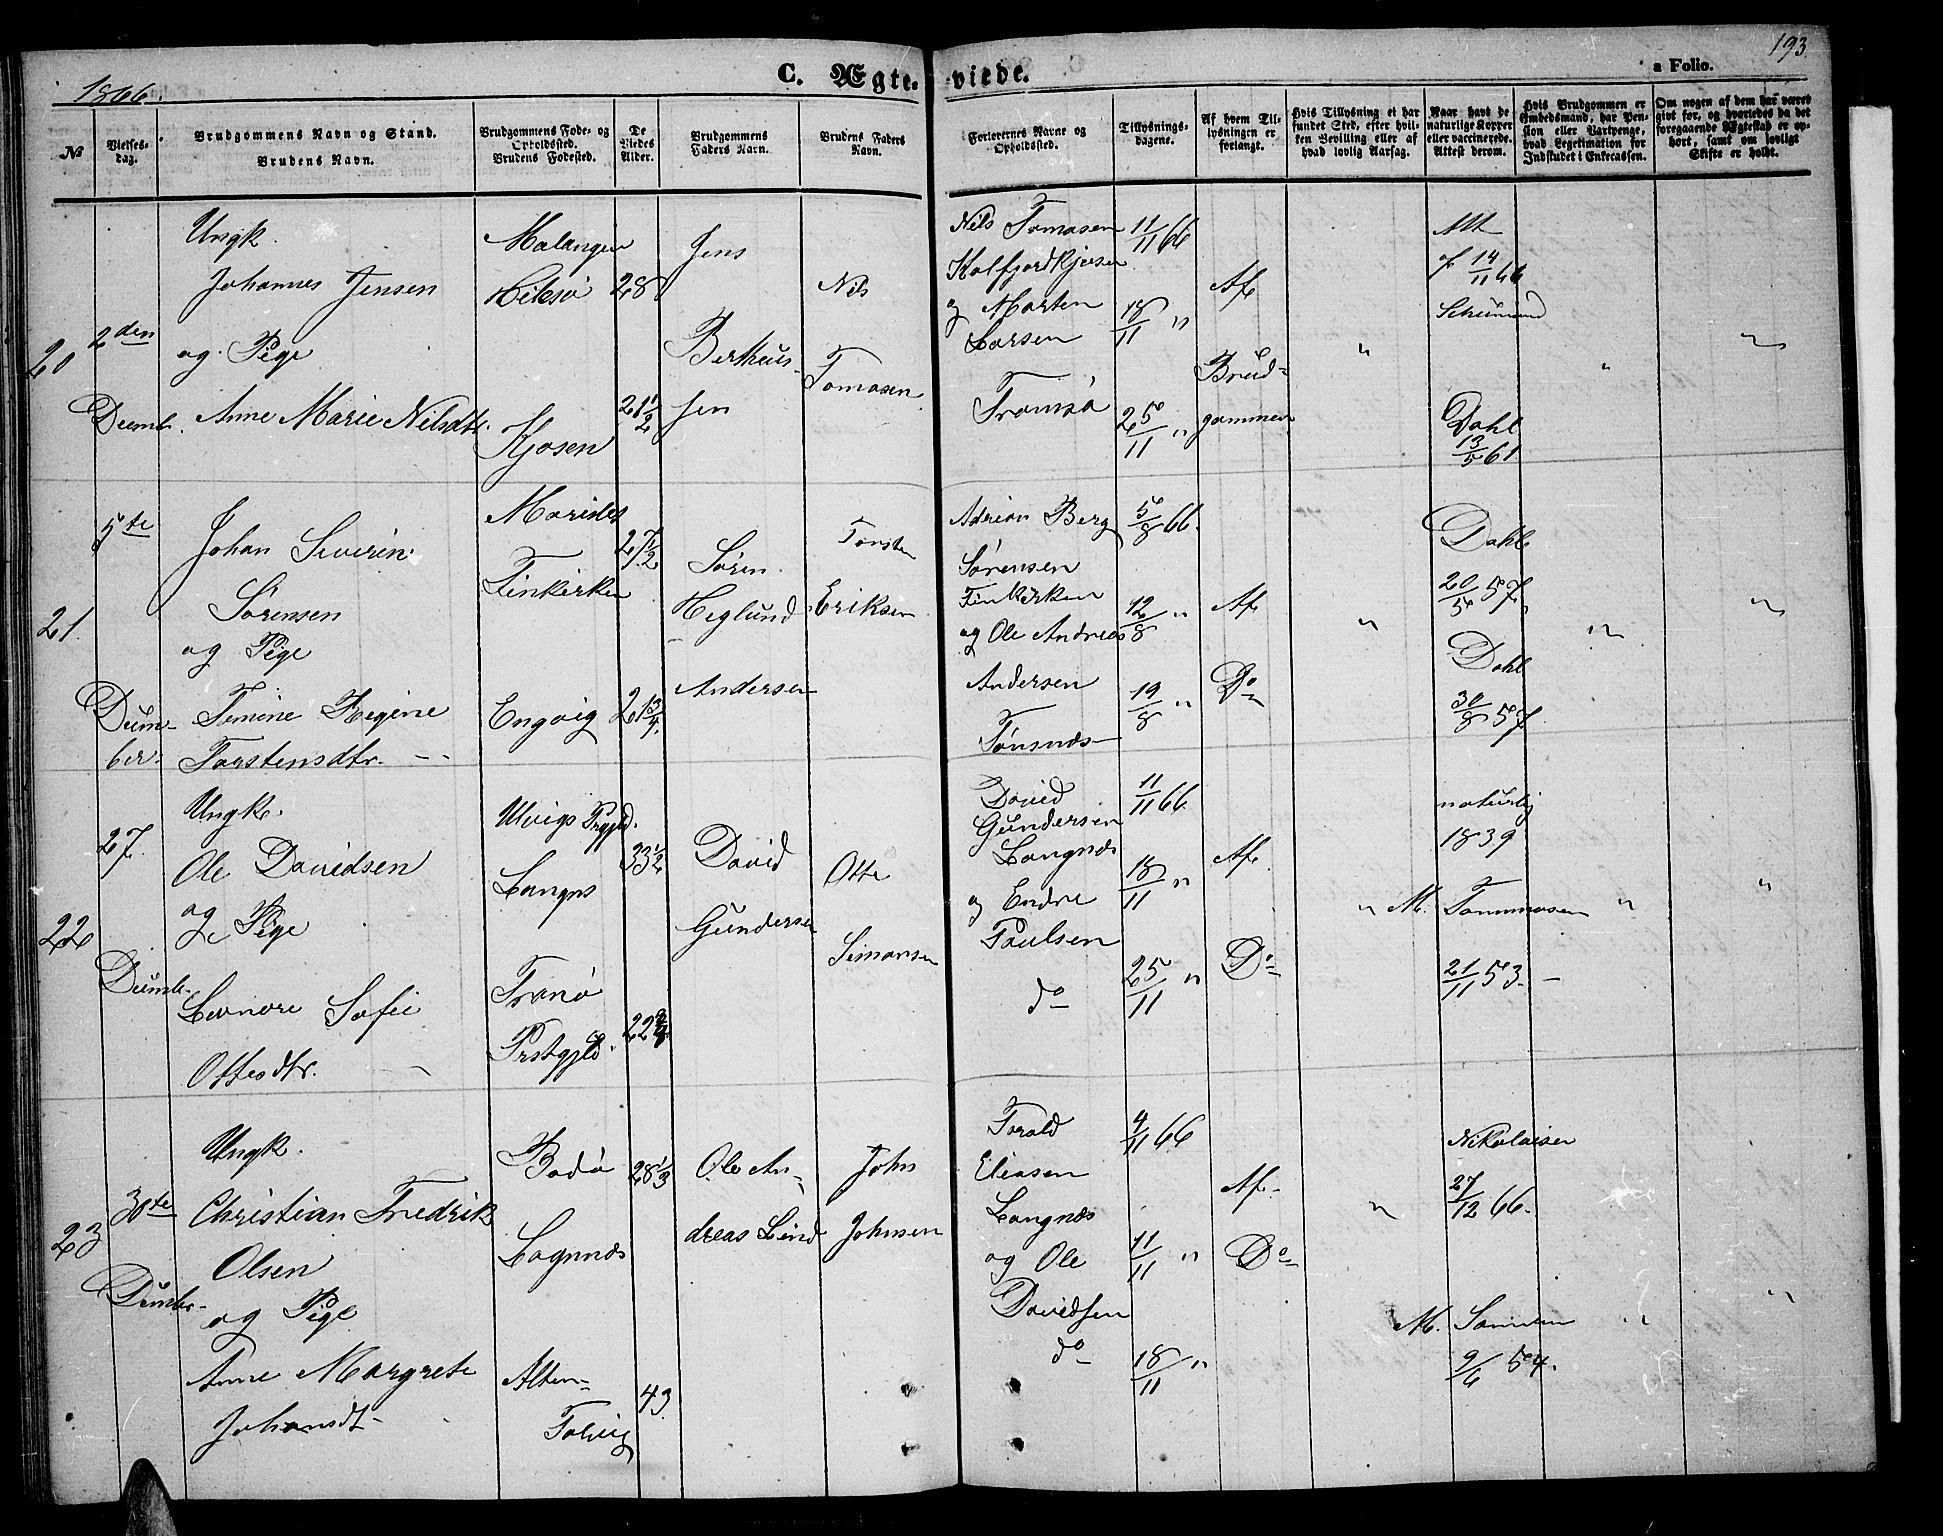 1866.
C. Ægte-viede.
193
a Folio.
No
Vielses-dag.
Brudgommens Navn og Stand.
Brudens Navn.
Brudgommens Føde- og Opholdssted.
Brudens Fødested.
De Viedes Alder.
Brudgommens Faders Navn.
Brudens Faders Navn.
Forlovernes Navne og Opholdssted.
Tillysnings-dagene.
Af hvem Tillysningen er forlangt.
Hvis Tillysning ei har fundet Sted, efter hvilken Bevilling eller af hvad lovlig Aarsag.
Naar havt de naturlige Kopper eller vaccinerede. Attest derom.
Hvis Brudgommen er Embedsmand, har Pension eller Vartpenge, hvad Legitimation for Indskudet i Enkecassen.
Om nogen af dem har været givt for, og hvorledes da det foregaaende Ægteskab er ophørt, samt om lovligt Skifte er holdt.
20
2den
Decemb.
Ungk.
Johannes Jensen
og Pige
Anne Marie Nilsdtr.
Malangen
Kjosen
28
21 1/2
Jens
Berthus-
sen
Nils
Tomasen
Nils Tomasen
Kalfjordkjosen
og Morten
Larsen
Tromsø
11/11 66
18/11 "
25/11 "
Af
Brud-
gommen
"
Att
af 14/11 66
Dahl
13/5 61.
"
"
21.
5te
Decem-
ber.
Johan Severin
Sørensen
og Pige
Regine
Torstensdtr. --
Finkirken
Engvig
27 1/2
21 3/4.
Søren
Heglund
Andersen
Torsten
Eriksen
Adrian Berg
Sørensen
Finkirken
og Ole Andreas
Andersen
Tønsnæs
5/8 66.
12/8 "
19/8 "
Af
Do
"
Dahl
20/5 57.
Dahl
30/8 57.
"
"
22
27.
Decemb.
Ungk.
Ole Davidsen
og Pige
Lenore Sofie
Ottesdtr.
Langnes
Tranø
Prstgjld.
33 1/2
22
David
Gundersen
Otte
Simonsen
David
Gundersen
Langnæs
og Endre
Paulsen
do
11/11 66
18/11 "
25/11 "
Af
Do
"
naturlig
1839
M. Tommasen
21/11 53. -
"
"
23
30te
Decembr.
Ungk.
Christian Fredrik
Olsen
og Pige
Anne Margrete
Johansdt-
Bodø
Langnæs
Alten-
Talvig
28 1/3
43.
Ole An-
dreas Lind
John
Johnsen
Torald
Eliasen
Langnæs
og Ole
Davidsen
do
4/11 66
11/11 "
18/11 "
Af
Do
"
Nikolaisen
27/12 66.
M.
9/6 54.
"
"